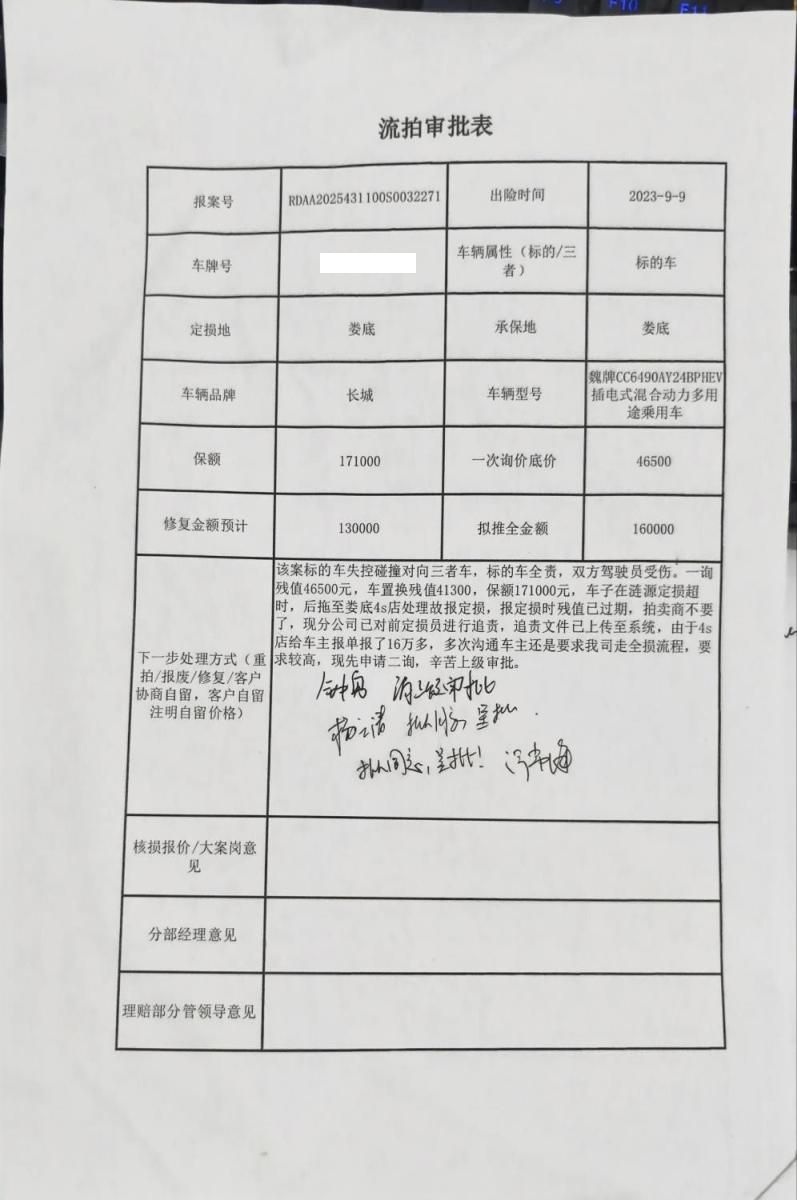 F10
F11
流拍审批表
报案号 RDAA2025431100S0032271 出险时间 2023-9-9
车牌号 车辆属性（标的/三
者） 标的车
定损地 娄底 承保地 娄底
车辆品牌 长城 车辆型号 魏牌CC6490AY24BPHEV
插电式混合动力多用
途乘用车
保额 171000 一次询价底价 46500
修复金额预计 130000 拟推全金额 160000
下一步处理方式（重
拍/报废/修复/客户
协商自留，客户自留
注明自留价格）
该案标的车失控碰撞对向三者车，标的车全责，双方驾驶员受伤。一询
残值46500元，车置换残值41300，保额171000元，车子在涟源定损超
时，后拖至娄底4s店处理故报定损，报定损时残值已过期，拍卖商不要
了，现分公司已对前定损员进行追责，追责文件已上传至系统，由于4s
店给车主报单报了16万多，多次沟通车主还是要求我司走全损流程，要
求较高，现先申请二询，辛苦上级审批。
审批
呈批
拟同意，呈批！
核损报价/大案岗意
见
分部经理意见
理赔部分管领导意见